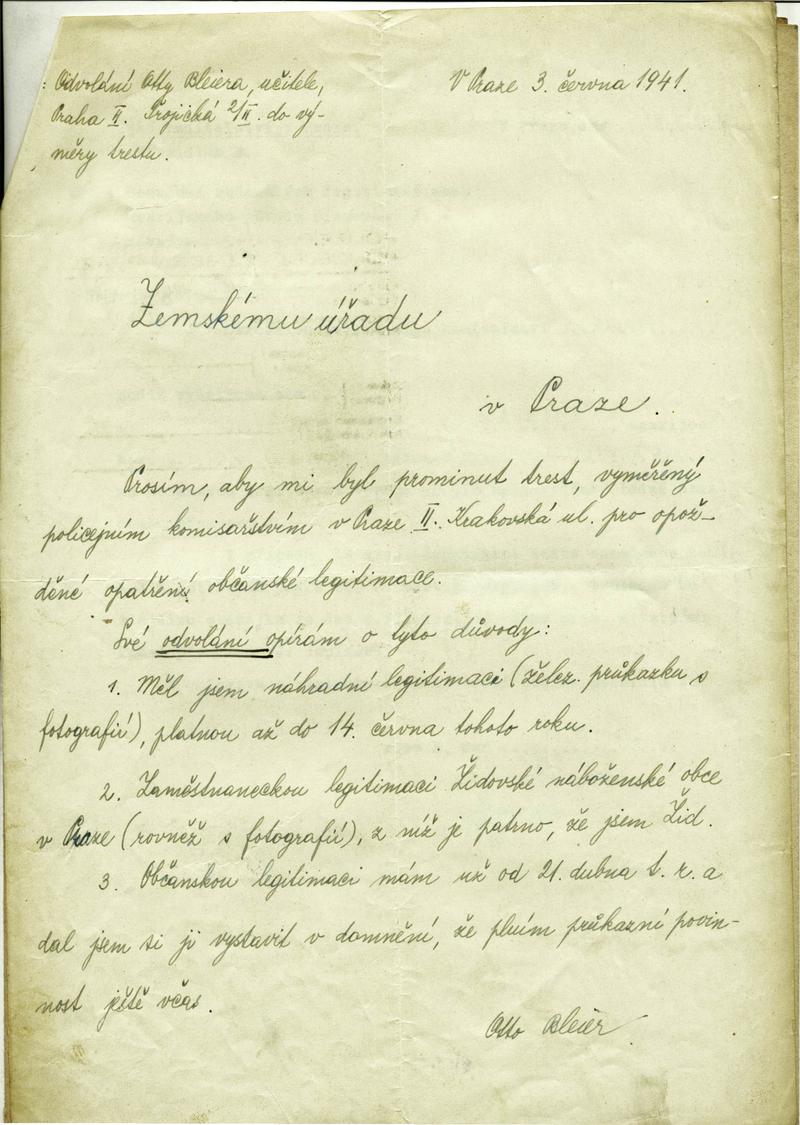 : Odvolání Otty Bleiera, učitele,
Praha II. Trojická 2/II. do vý-
měry trestu.
V Praze 3. června 1941.
Zemskému úřadu
v Praze.
Prosím, aby mi byl prominut trest, vyměřený
policejním komisařstvím v Praze II. Krakovská ul. pro opož-
děné opatření občanské legitimace.
Své odvolání opírám o tyto důvody:
1. Měl jsem náhradní legitimaci (želez. průkazku s
fotografií), platnou až do 14. června tohoto roku.
2. Zaměstnaneckou legitimaci Židovské náboženské obce
v Praze (rovněž s fotografií), z níž je patrno, že jsem Žid.
3. Občanskou legitimaci mám už od 21. dubna t. r. a
dal jsem si ji vystavit v domnění, že plním průkazní povin-
nost ještě včas.
Otto Bleier